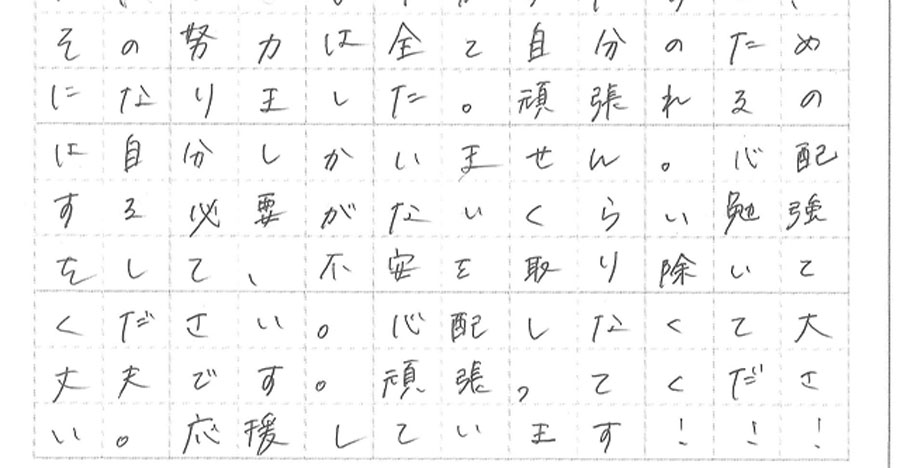 その努力は全て自分のため
になりました。頑張れるの
は自分しかいません。心配
する必要がないくらい勉強
をして、不安を取り除いて
ください。心配しなくて大
丈夫です。頑張ってくださ
い。応援しています!!!